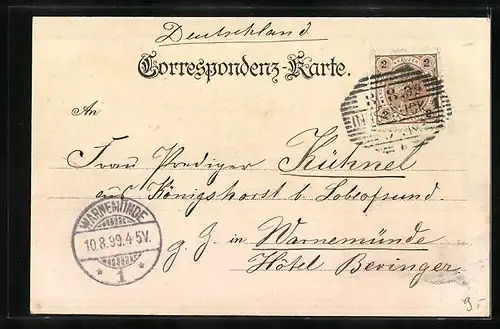 Deutschland
Correspondenz-Karte.
2 KREUZER 2
8. 99
IN
An
Frau Prediger Kühnel
aus Königshorst b. Lobeofsund.
WARNEMÜNDE
10.8.99.4-5V.
* 1 *
z. Z. in Warnemünde
Hôtel Beringer
9.-